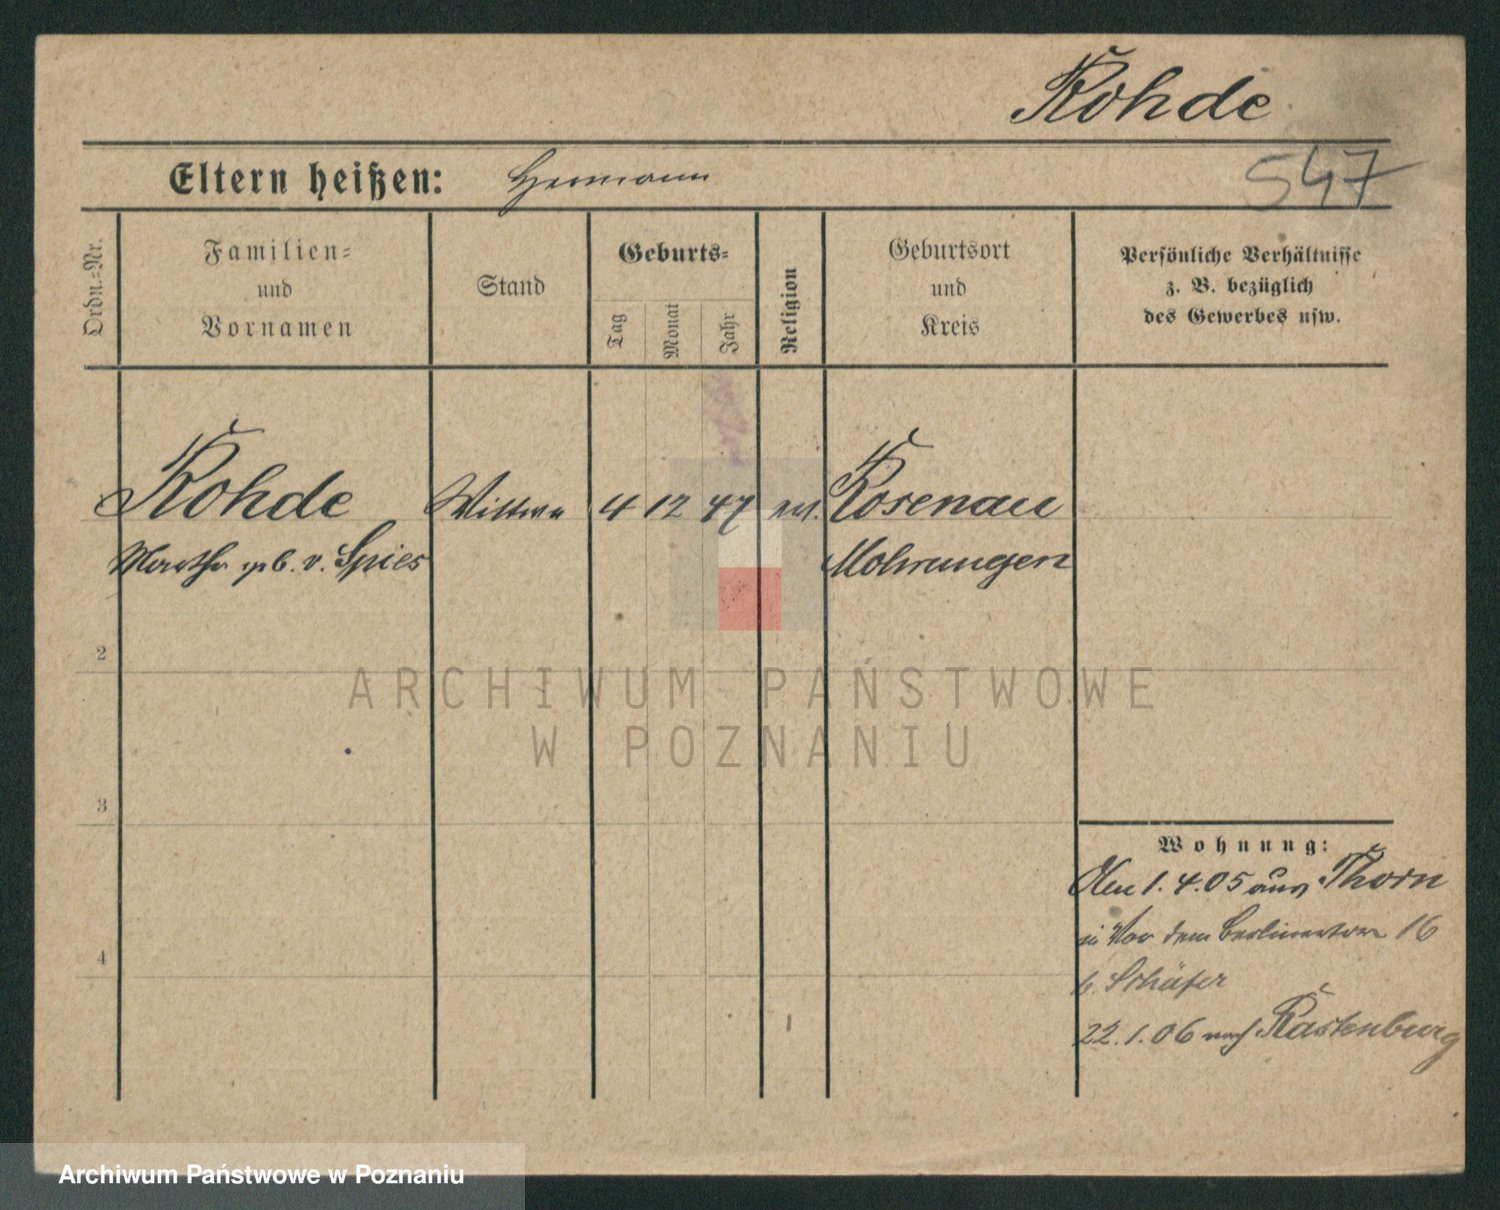 Rohde
547
Eltern heißen: Hermann
Ordn.=Nr.
Familien=
und
Vornamen
Stand
Geburts=
Tag
Monat
Jahr
Religion
Geburtsort
und
Kreis
Persönliche Verhältnisse
z. B. bezüglich
des Gewerbes usw.
Rohde Wittwe 4 12 47 Rosenau
Martha geb. v. Spies Mohrungen
2
3
4
Wohnung:
Den 1.4.05 aus Thorn
in Vor dem Berlinertor 16
b. Schäfer
22.1.06 nach Rastenburg
ARCHIWUM PAŃSTWOWE
W POZNANIU
Archiwum Państwowe w Poznaniu